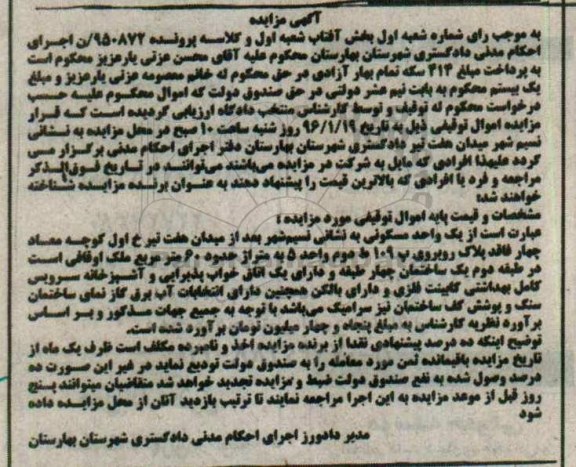 آگهی مزایده
به موجب رای شماره شعبه اول بخش آفتاب شعبه اول و کلاسه پرونده ۹۵۰۸۷۲/ن اجرای
احکام مدنی دادگستری شهرستان بهارستان محکوم علیه آقای محسن عزتی یارعزیز محکوم است
به پرداخت مبلغ ۴۱۴ سکه تمام بهار آزادی در حق محکوم له خانم معصومه عزتی یارعزیز و مبلغ
یک بیستم محکوم به بابت نیم عشر دولتی در حق صندوق دولت که اموال محکوم علیه حسب
درخواست محکوم له توقیف و توسط کارشناس منتخب دادگاه ارزیابی گردیده است که قرار
مزایده اموال توقیفی ذیل به تاریخ ۹۶/۱/۱۹ روز شنبه ساعت ۱۰ صبح در محل مزایده به نشانی
نسیم شهر میدان هفت تیر دادگستری شهرستان بهارستان دفتر اجرای احکام مدنی برگزار می
گردد علیهذا افرادی که مایل به شرکت در مزایده می‌باشند می‌توانند در تاریخ فوق‌الذکر
مراجعه و فرد یا افرادی که بالاترین قیمت را پیشنهاد دهند به عنوان برنده مزایده شناخته
خواهند شد؛
مشخصات و قیمت پایه اموال توقیفی مورد مزایده :
عبارت است از یک واحد مسکونی به نشانی نسیم‌شهر بعد از میدان هفت تیر خ اول کوچه معاد
چهار فاقد پلاک روبروی پ ۱۰۹ ط دوم واحد ۵ به متراژ حدود ۶۰ متر مربع ملک اوقافی است
در طبقه دوم یک ساختمان چهار طبقه و دارای یک اتاق خواب پذیرایی و آشپزخانه سرویس
کامل بهداشتی کابینت فلزی و دارای بالکن همچنین دارای انتخابات آب برق گاز نمای ساختمان
سنگ و پوشش کف ساختمان نیز سرامیک می‌باشد با توجه به جمیع جهات مذکور و بر اساس
برآورد نظریه کارشناس به مبلغ پنجاه و چهار میلیون تومان برآورد شده است.
توضیح اینکه ده درصد پیشنهادی نقدا از برنده مزایده اخذ و نامبرده مکلف است ظرف یک ماه از
تاریخ مزایده باقیمانده ثمن مورد معامله را به صندوق دولت تودیع نماید در غیر این صورت ده
درصد وصول شده به نفع صندوق دولت ضبط و مزایده تجدید خواهد شد متقاضیان میتوانند پنج
روز قبل از موعد مزایده به این اجرا مراجعه نمایند تا ترتیب بازدید آنان از محل مزایده داده
شود
مدیر دادورز اجرای احکام مدنی دادگستری شهرستان بهارستان